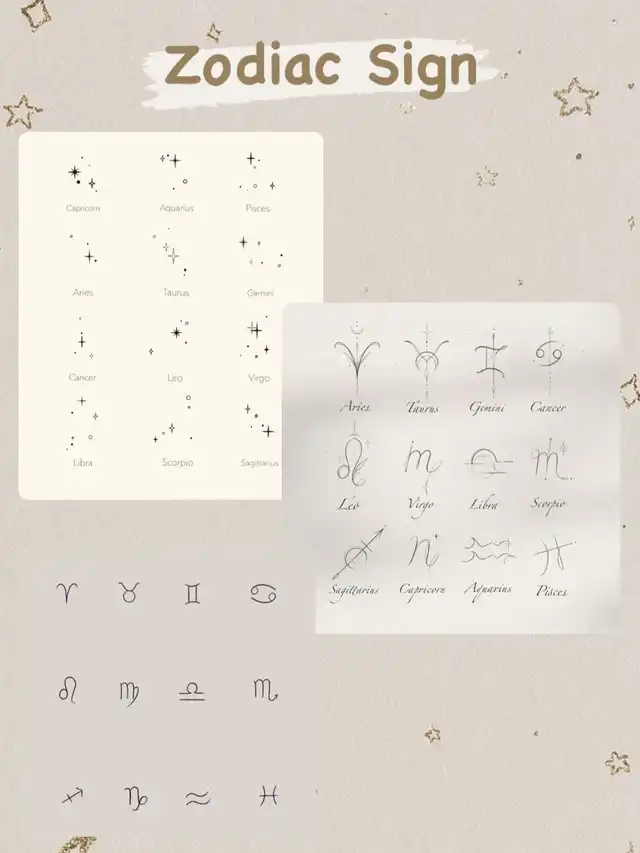 Zodiac Sign
Capricorn Aquarius Pisces
Aries Taurus Gemini
Cancer Leo Virgo
Libra Scorpio Sagittarius
Aries Taurus Gemini Cancer
Leo Virgo Libra Scorpio
Sagittarius Capricorn Aquarius Pisces
♈︎ ♉︎ ♊︎ ♋︎
♌︎ ♍︎ ♎︎ ♏︎
♐︎ ♑︎ ♒︎ ♓︎